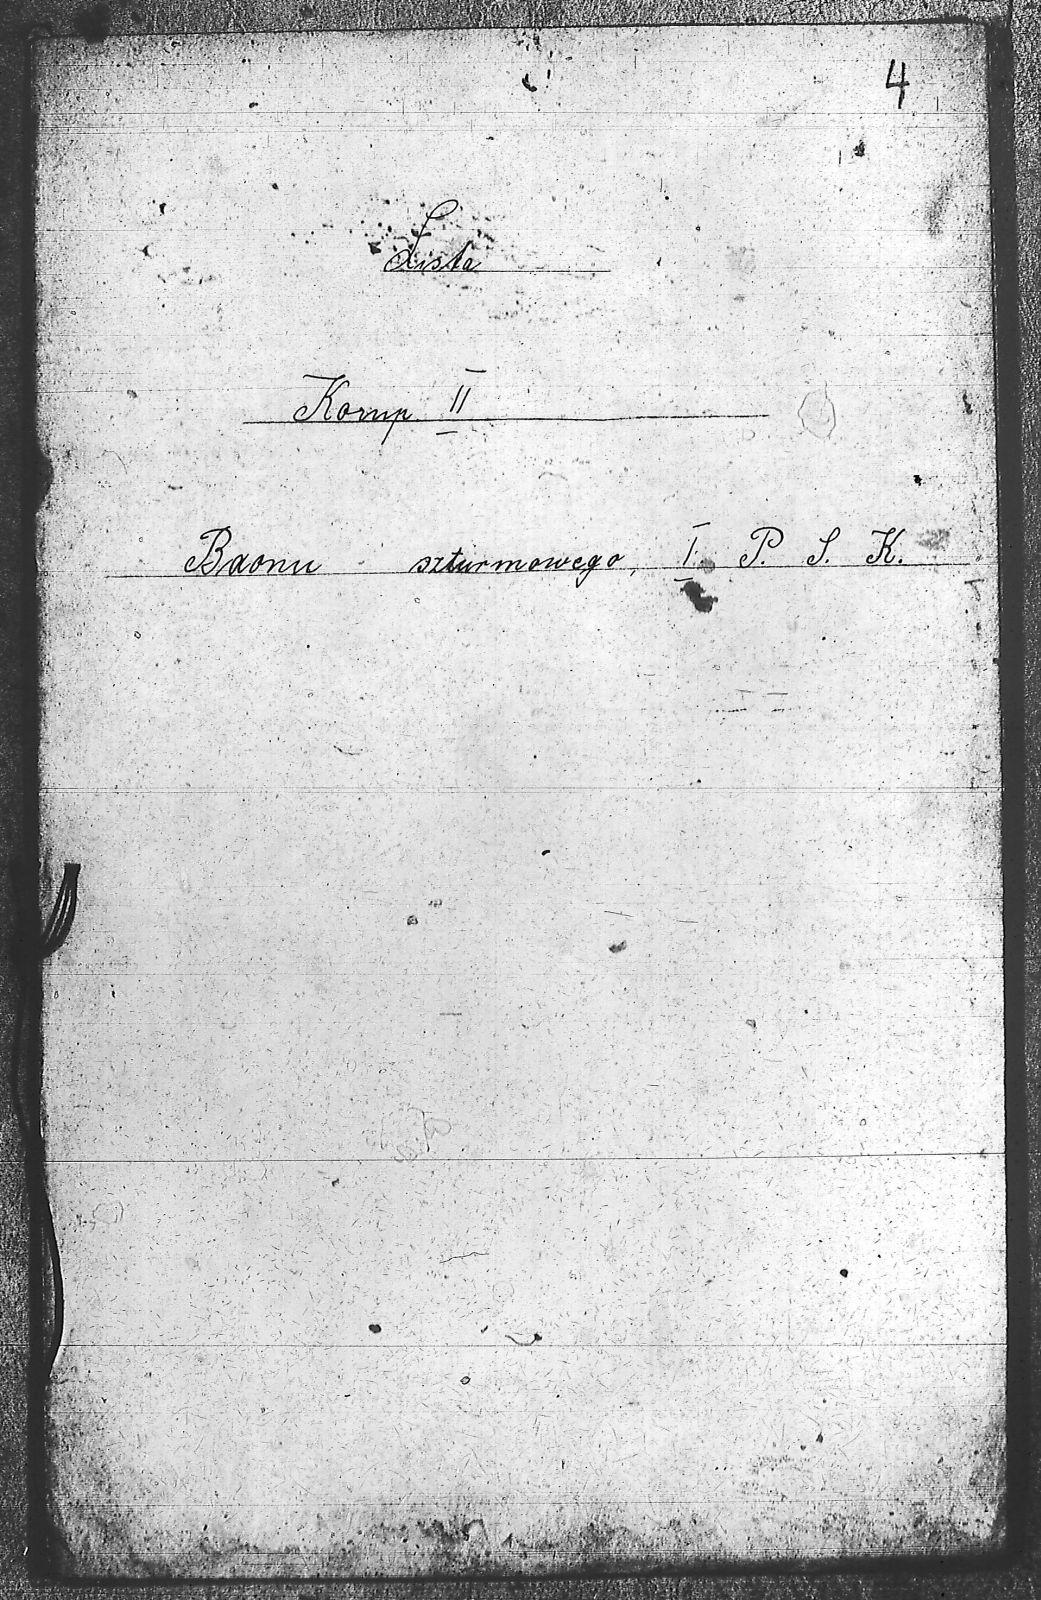 4
Lista
Komp. II
Baonu szturmowego, I. P. S. K.